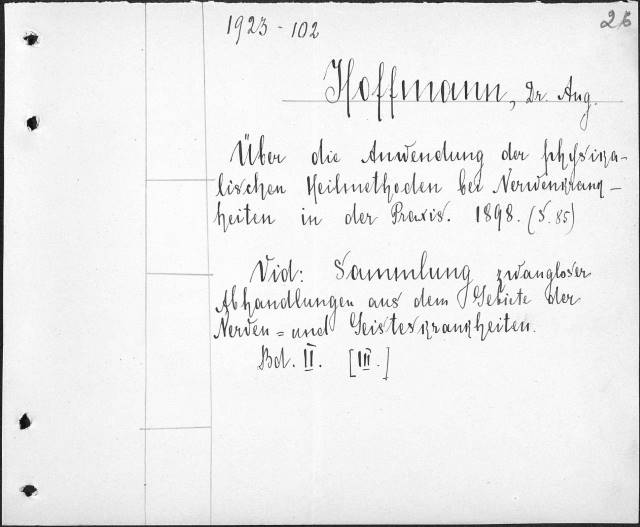 1923-102
26
Hoffmann, Dr. Aug.
Über die Anwendung der physika-
lischen Heilmethoden bei Nervenkrank-
heiten in der Praxis. 1898. (S. 85)
Vid: Sammlung zwangloser
Abhandlungen aus dem Gebiete der
Nerven = und Geisteskrankheiten.
Bd. II. [III.]